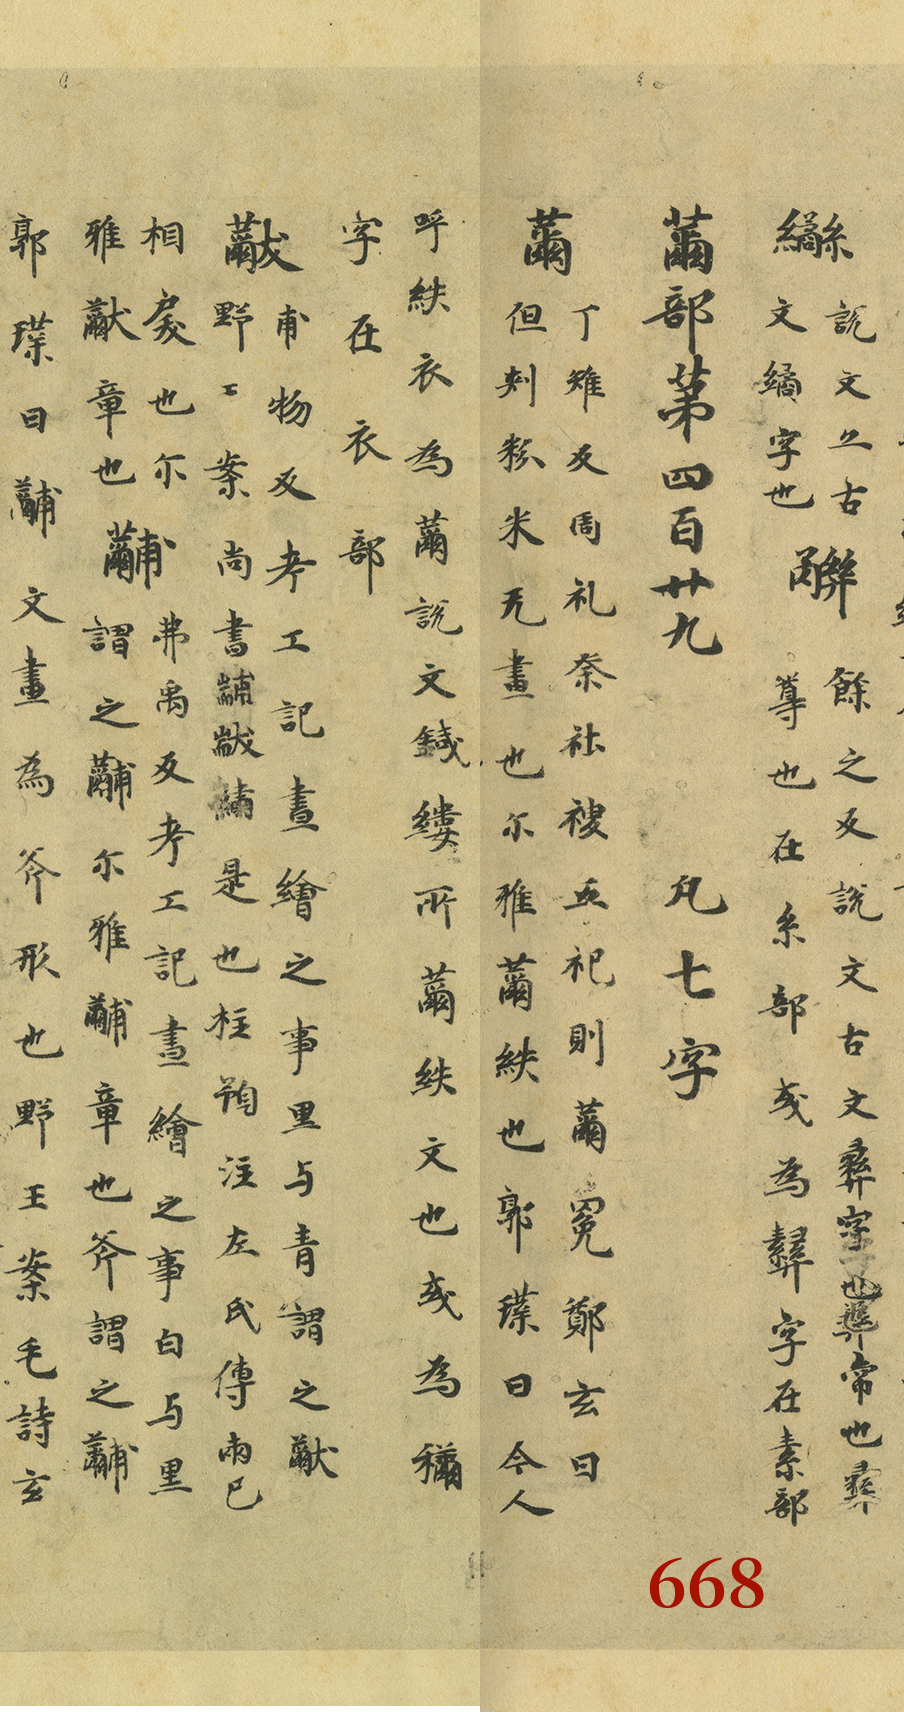 說文亦古
文繘字也
餘之反說文古文彝字也彝常也彝
尊也在糸部或為字在素部
黹部第四百廿九 凡七字
黹
丁雉反周礼祭社禝五祀則黹冕鄭玄曰
但刾粉米无畫也尓雅黹紩也郭璞曰今人
呼紩衣為黹說文鍼縷所黹紩文也或為襧
字在衣部
黻
甫物反考工記畫繪之事黒与青謂之黻
野王案尚書黼黻繡是也杜預注左氏傳兩已
相戾也尓
雅黻章也
黼
弗禹反考工記畫繪之事白与黒
謂之黼尓雅黼章也斧謂之黼
郭璞曰黼文畫為斧形也野王案毛詩玄
668